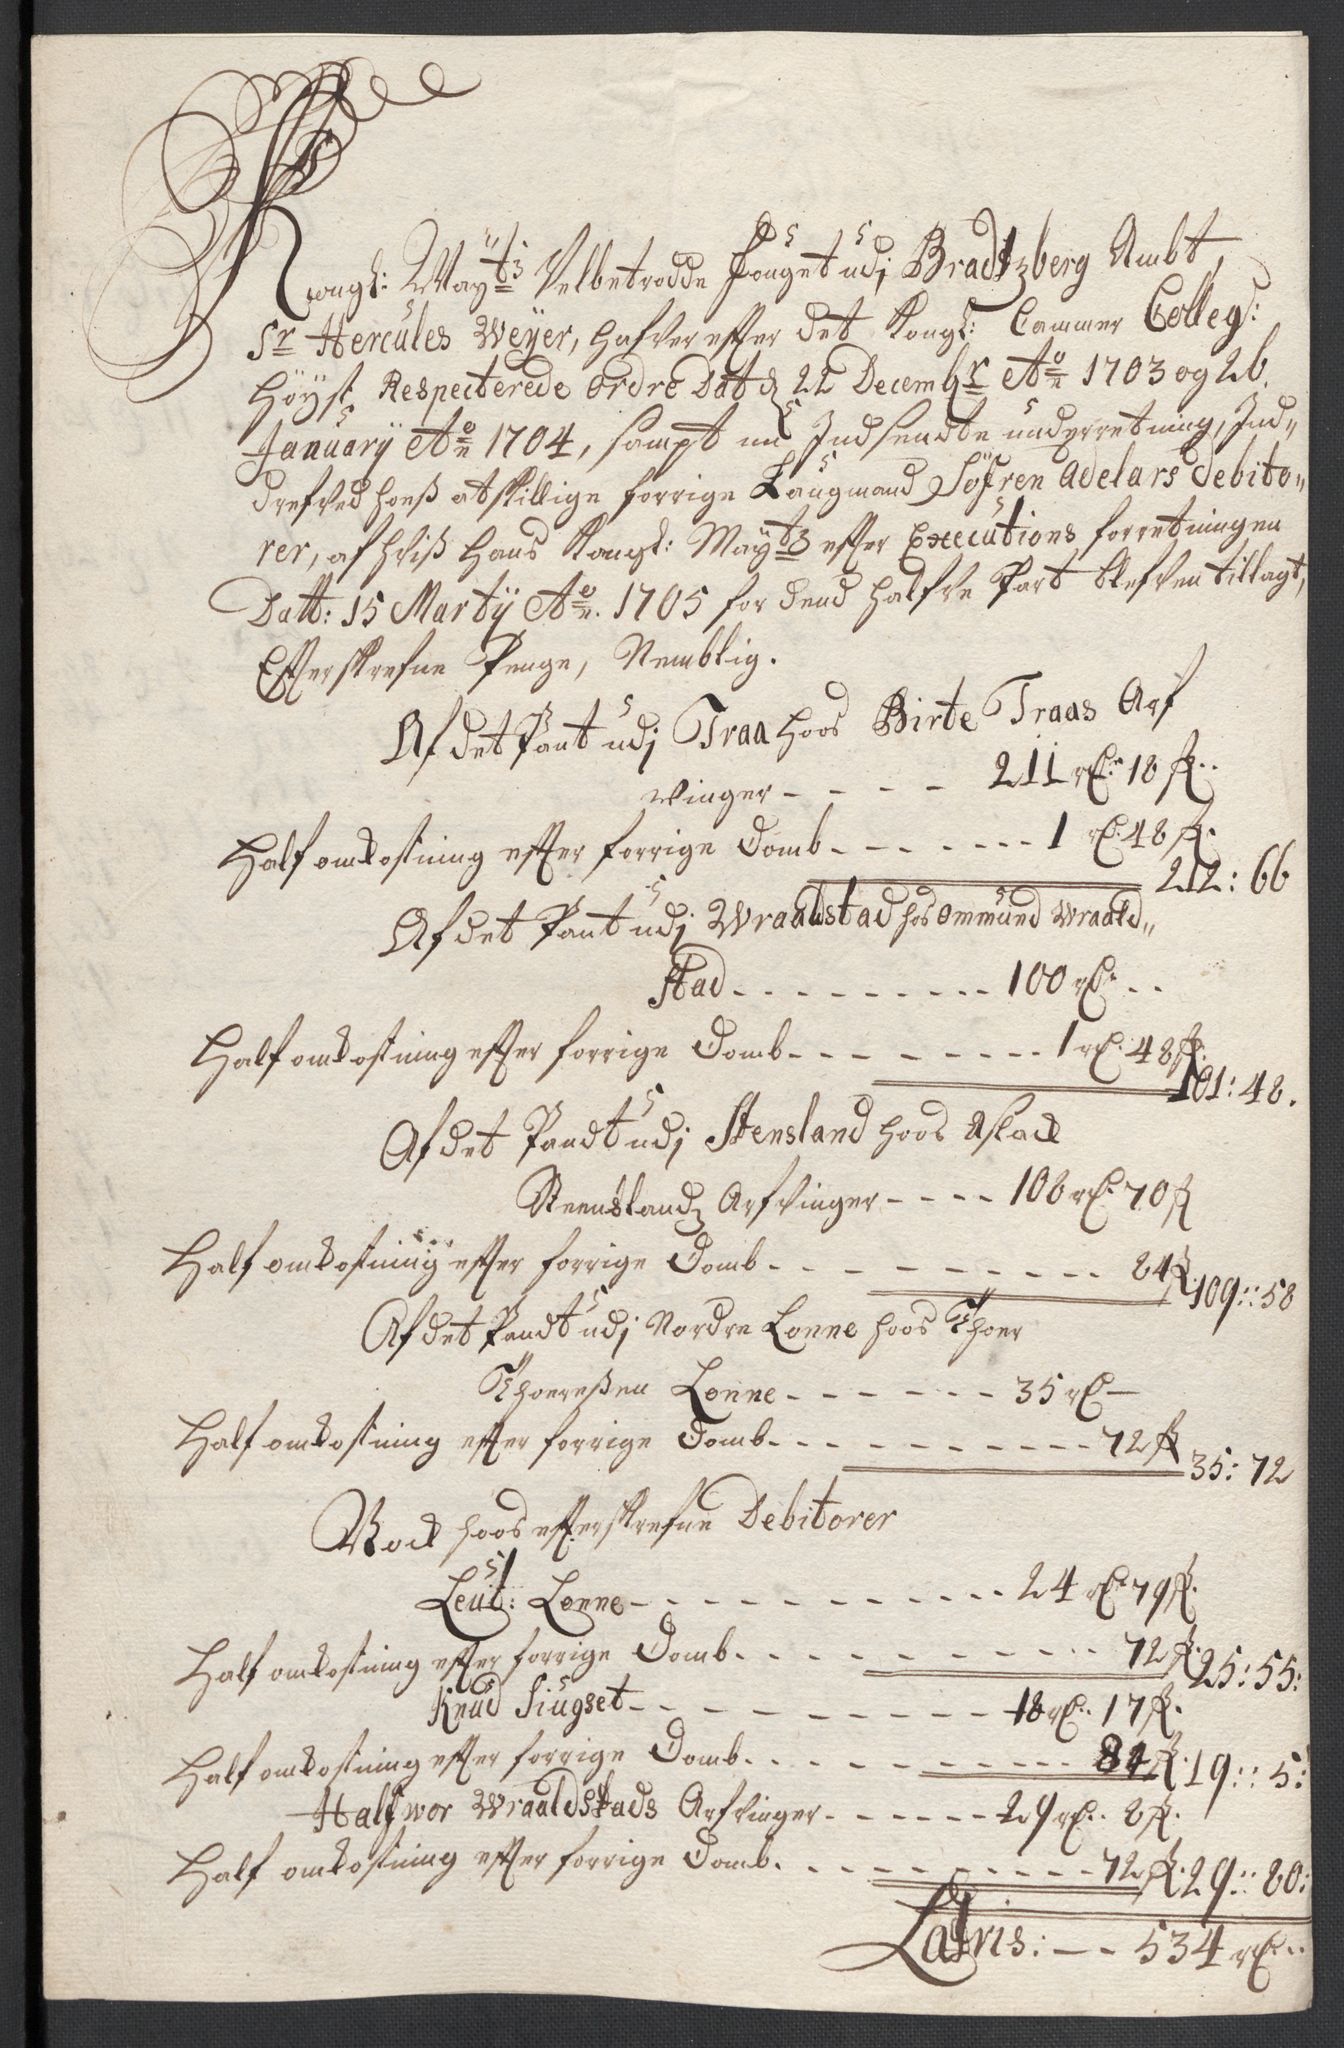 Kongl: May:ts Velbetrodde Fouget udj Bradtzberg Ambt,
Sr Hercules Weÿer, hafver effter det Kongl: Cammer Colleg:
Höyst Respecterede Ordre Dat d 22 Decembr Ao 1703 og 26.
Januarÿ Ao 1704, sampt nu Indsendte underretning, Ind„
drefved hoeß atskillige forrige Laugmand Söfren Adelars Debito„
rer, af hviß Hans Kongl: Mayts effter Executions forretningen
Datt: 15 Martÿ Ao. 1705 for dend halfve Part blefven tillagt,
Effterskrefne Penge, Nemblig.
Af det Pant udj Traa hoos Birte Traas Arf
vinger - - - - 211 rd. 18 s..
Half omkostning effter forrige Domb - - - - - 1 rd. 48 s.
212: 66
Af det Pant udj Wraalstad hos Ommund Wraald„
stad - - - - - - - - 100 rd. ..
Half omkostning effter forrige Domb - - - - - - 1 rd. 48 s.
101: 48.
Af det Pandt udj Stensland hoos Aslack
Steenslandz Arfvinger - - - - 108 rd. 70 s
Half omkostning effter forrige Domb - - - - - - - - 84 s.
109:: 58
Af det Pandt udj Nordre Lonne hoos Thoer
Thoereßen Lonne - - - - - - 35 rd —
Half omkostning effter forrige Domb - - - - - - - - 72 s
35: 72
Nock hoos effterskrefne Debitorer
Leut: Lonne - - - - - - - - - - 24 rd. 79 s.
Half omkostning effter forrige Domb - - - - - - - - 72 s.
25: 55:
Knud Siugset - - - - - - - - - 18 rd. 17 s.
Half omkostning effter forrige Domb - - - - - - - - 84 s.
19:: 5:
Halfwor Wraaldstads Arfvinger - - - - - 29 rd. 8 s.
Half omkostning effter forrige Domb - - - - - - - - 72 s.
29:: 80:
Latris: — - - 534 rd. ..